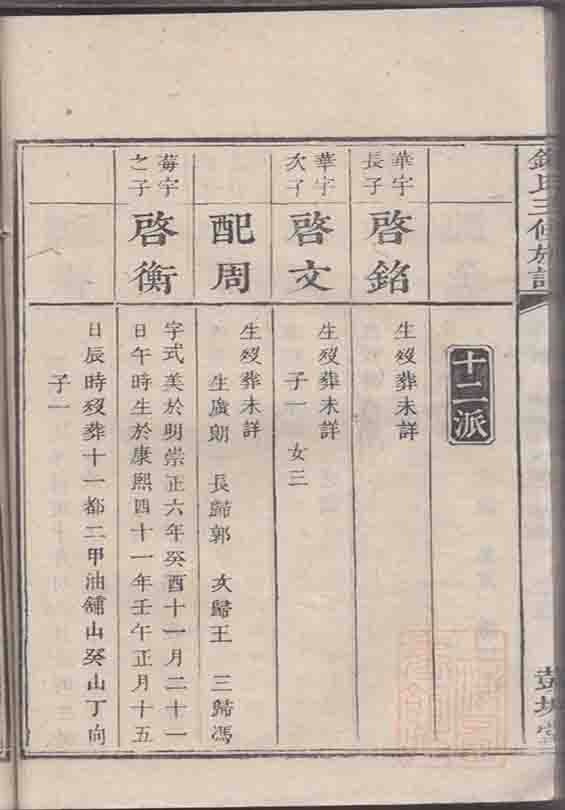 十二派
華宇
長子
啓銘
生歿葬未詳
華宇
次子
啓文
生歿葬未詳
子一 女三
配周
生歿葬未詳
生廣朗 長歸郭 次歸王 三歸馮
莓宇
之子
啓衡
字式美於明崇正六年癸酉十一月二十一
日午時生於康熙四十一年壬午正月十五
日辰時歿葬十一都二甲油鋪山癸山丁向
子一